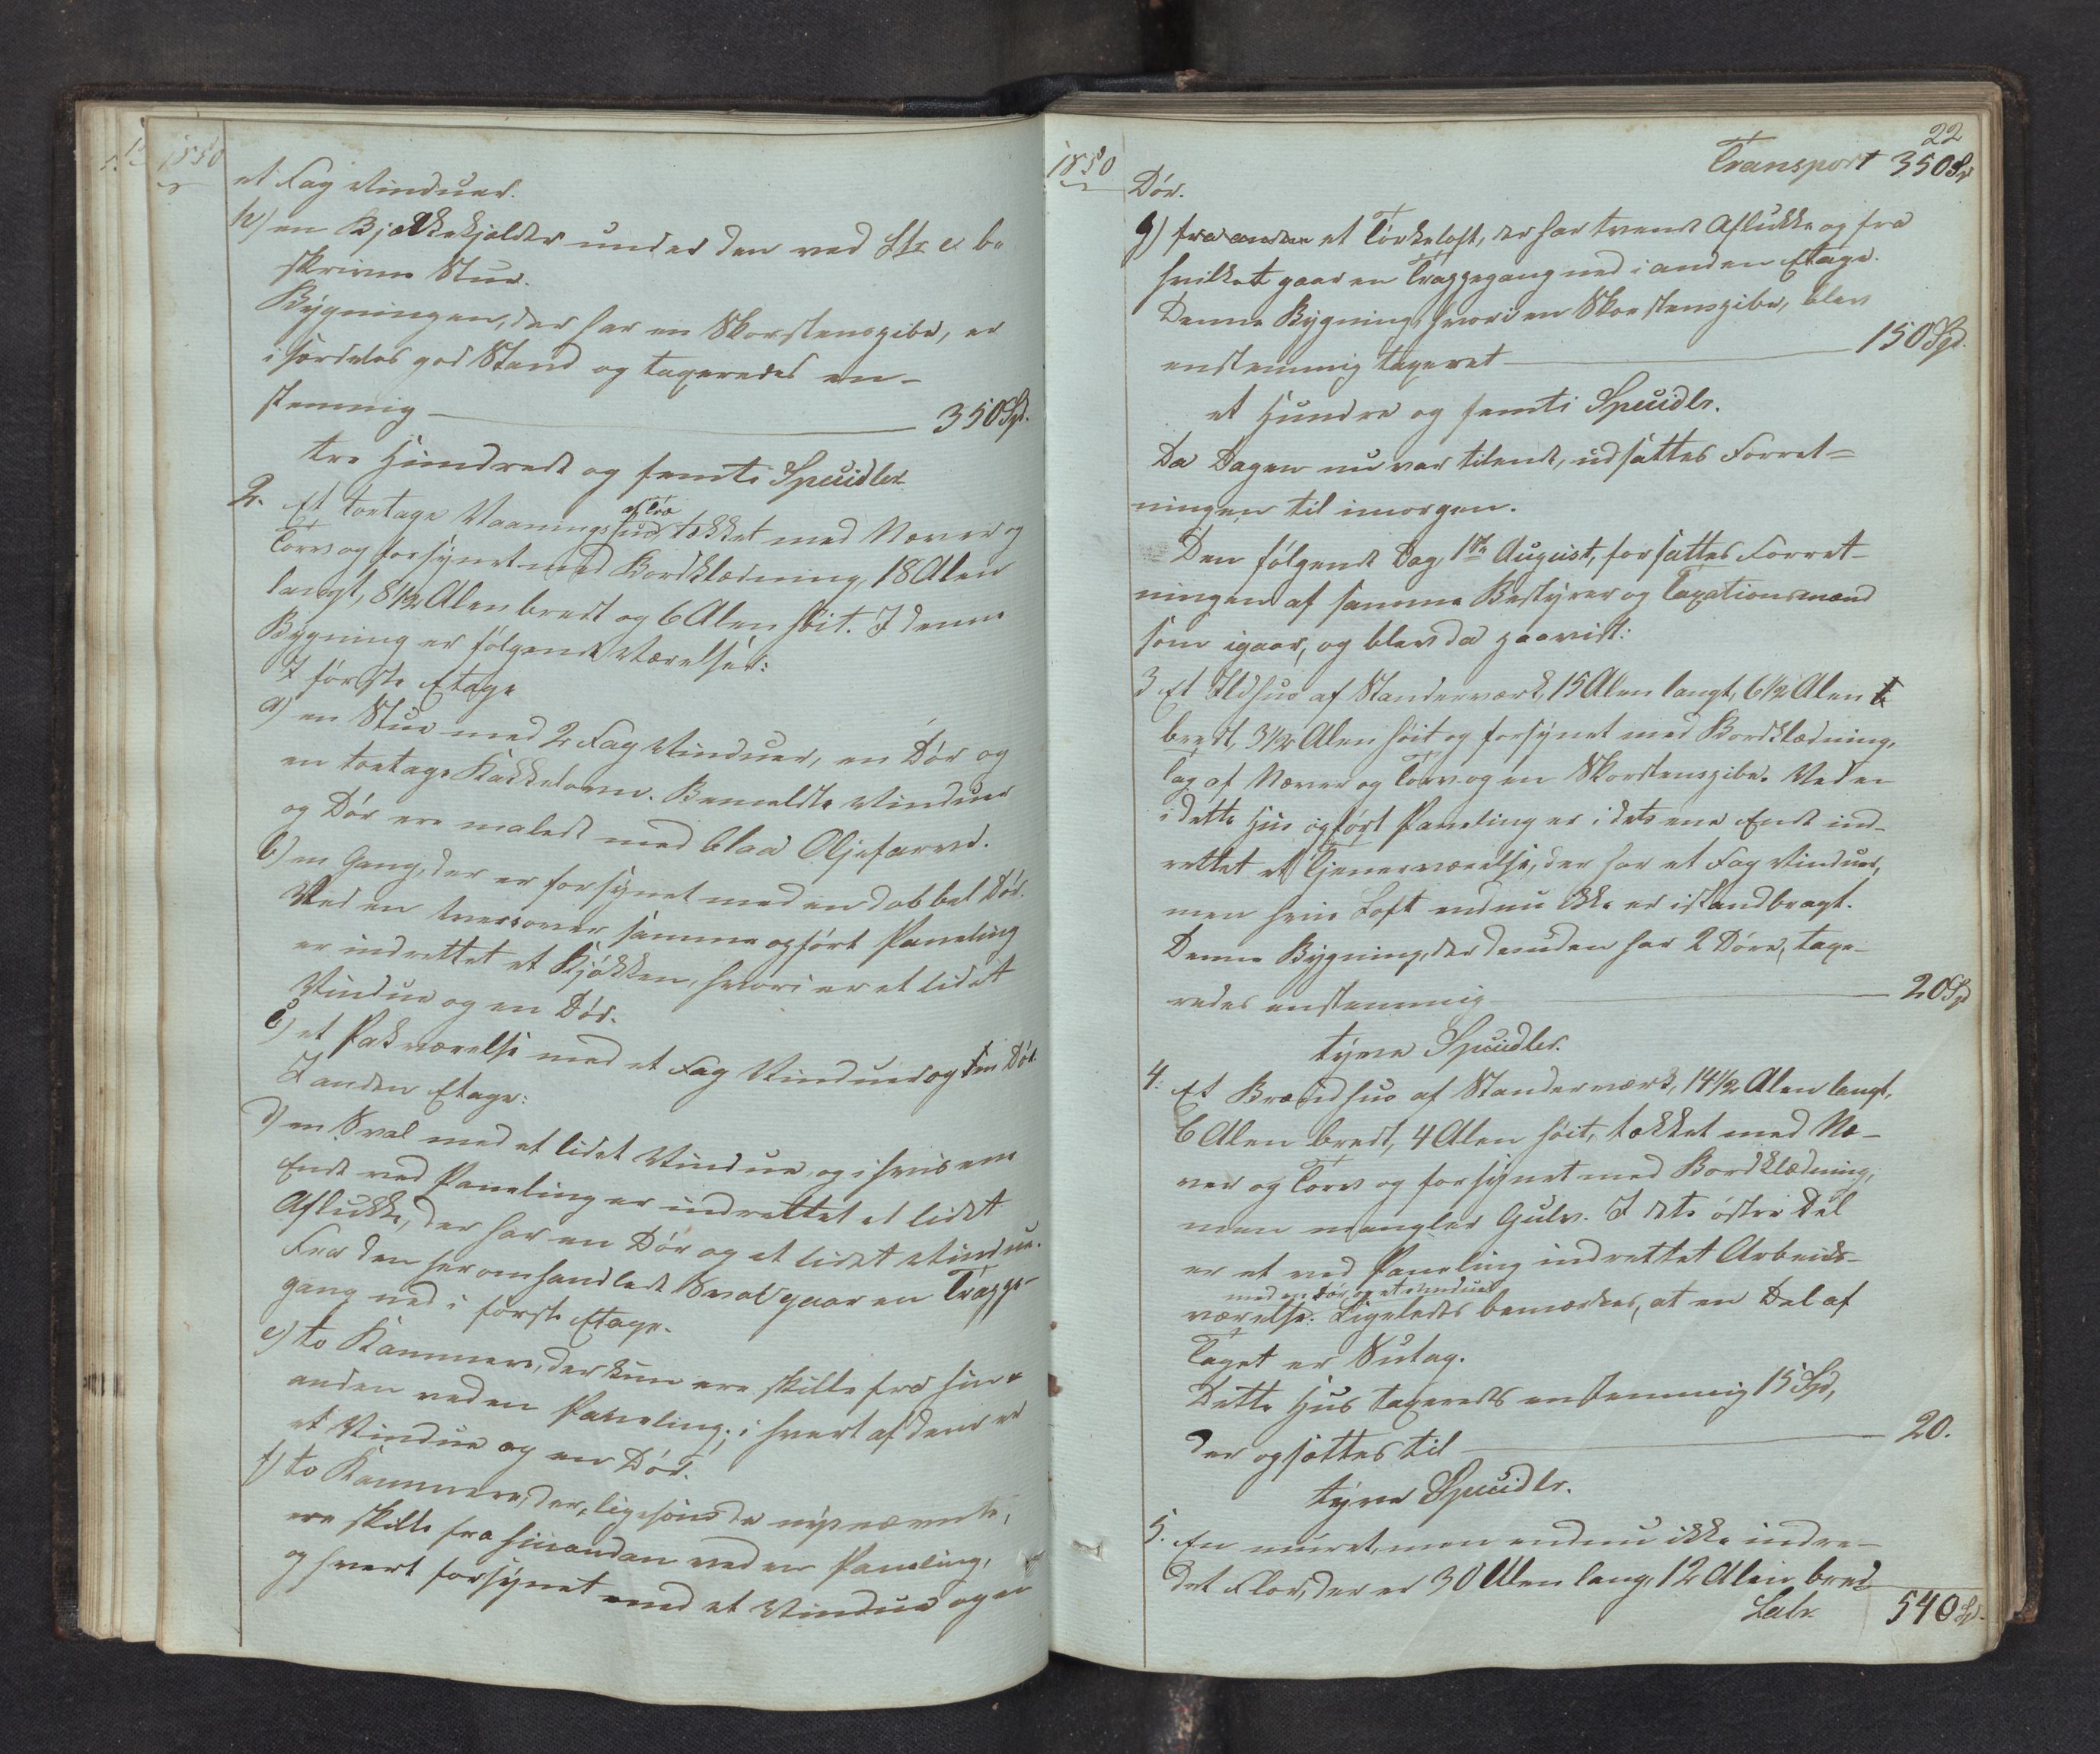 1850
et Fag Vinduer.
h) en Bjælkekjelder under den ved Ltr c. be
skrivne Stue.
Bygningen, der har en Skorstenspibe, er
i særdeles god Stand og taxeredes en-
stemmig 350 Spd.
tre Hundrede og femti Speciedlr.
2. Et toetages Vaaningshuus af Træ tækket med Næver og
Torv og forsynet med Bordklædning, 18 Alen
langt, 8 1/2 Alen bredt og 6 Alen høit. I denne
Bygning er følgende Værelser:
I første Etage
a) en Stue med 2 Fag Vinduer, en Dör og
en toetages Kakkelovn. Bemeldte Vinduer
og Dör ere malede med blaa Oljefarve.
b) en Gang, der er forsynet med en dobbel Dör.
Ved en tversover samme opført Paneling
er indrettet et Kjökken, hvori er et lidet
Vindue og en Dör.
c) et Pakværelse med et Fag Vinduer og en Dör
I anden Etage:
d) en Sval med et lidet Vindue og i hvis ene
Ende ved Paneling er indrettet et lidet
Aflukke, der har en Dör og et lidet Vindue.
Fra den heromhandlede Sval gaar en Trappe-
gang ned i første Etage.
e) to Kammere, der kun ere skilte fra hin-
anden ved en Paneling; i hvert af dem er
et Vindue og en Dör.
f) to Kammere, der, ligesom de nysnævnte,
ere skilte fra hinanden ved en Paneling,
og hvert forsynet med et Vindue og en
22
1850
Transport 350 Spd
Dör.
g) fra anden et Törkeloft, der har tvende Aflukke og fra
hvilket gaar en Trappegang ned i anden Etage.
Denne Bygning, hvori en Skorstenspibe, blev
enstemmig taxeret 150 Spd.
et Hundre og femti Speciedlr.
Da Dagen nu var tilende, udsattes Forret=
ningen til imorgen.
Den følgende Dag, 1ste August, fortsattes Forret-
ningen af samme Bestyrer og Taxationsmænd
som igaar, og blev da paavist:
3 Et Ildhus af Standerværk, 15 Alen langt, 6 1/2 Alen
bredt, 3 1/2 Alen høit og forsynet med Bordklædning,
Tag af Næver og Torv og en Skorstenspibe. Ved en
i dette Hus opført Paneling er i dets ene Ende ind-
rettet et Tjenerværelse, der har et Fag Vinduer,
men hvis Loft endnu ikke er istandbragt.
Denne Bygning, der desuden har 2 Döre, taxe-
redes enstemmig 20 Spd
tyve Speciedlr.
4. Et Brændhus af Standerværk, 14 1/2 Alen langt,
6 Alen bredt, 4 Alen høit, tækket med Næ-
ver og Torv og forsynet med Bordklædning,
men mangler Gulv. I dets østre Del
er et ved Paneling indrettet Arbeids-
med en Dör og et Vindue
værelse. Ligeledes bemærkes, at en Del af
Taget er Sutag.
Dette Hus taxeredes enstemmig 15 Spd,
der opsattes til 20.
tyve Speciedlr.
5. En muret, men endnu ikke indre-
det Flor, der er 30 Alen lang, 12 Alen bred
Latr. 540 Spd.